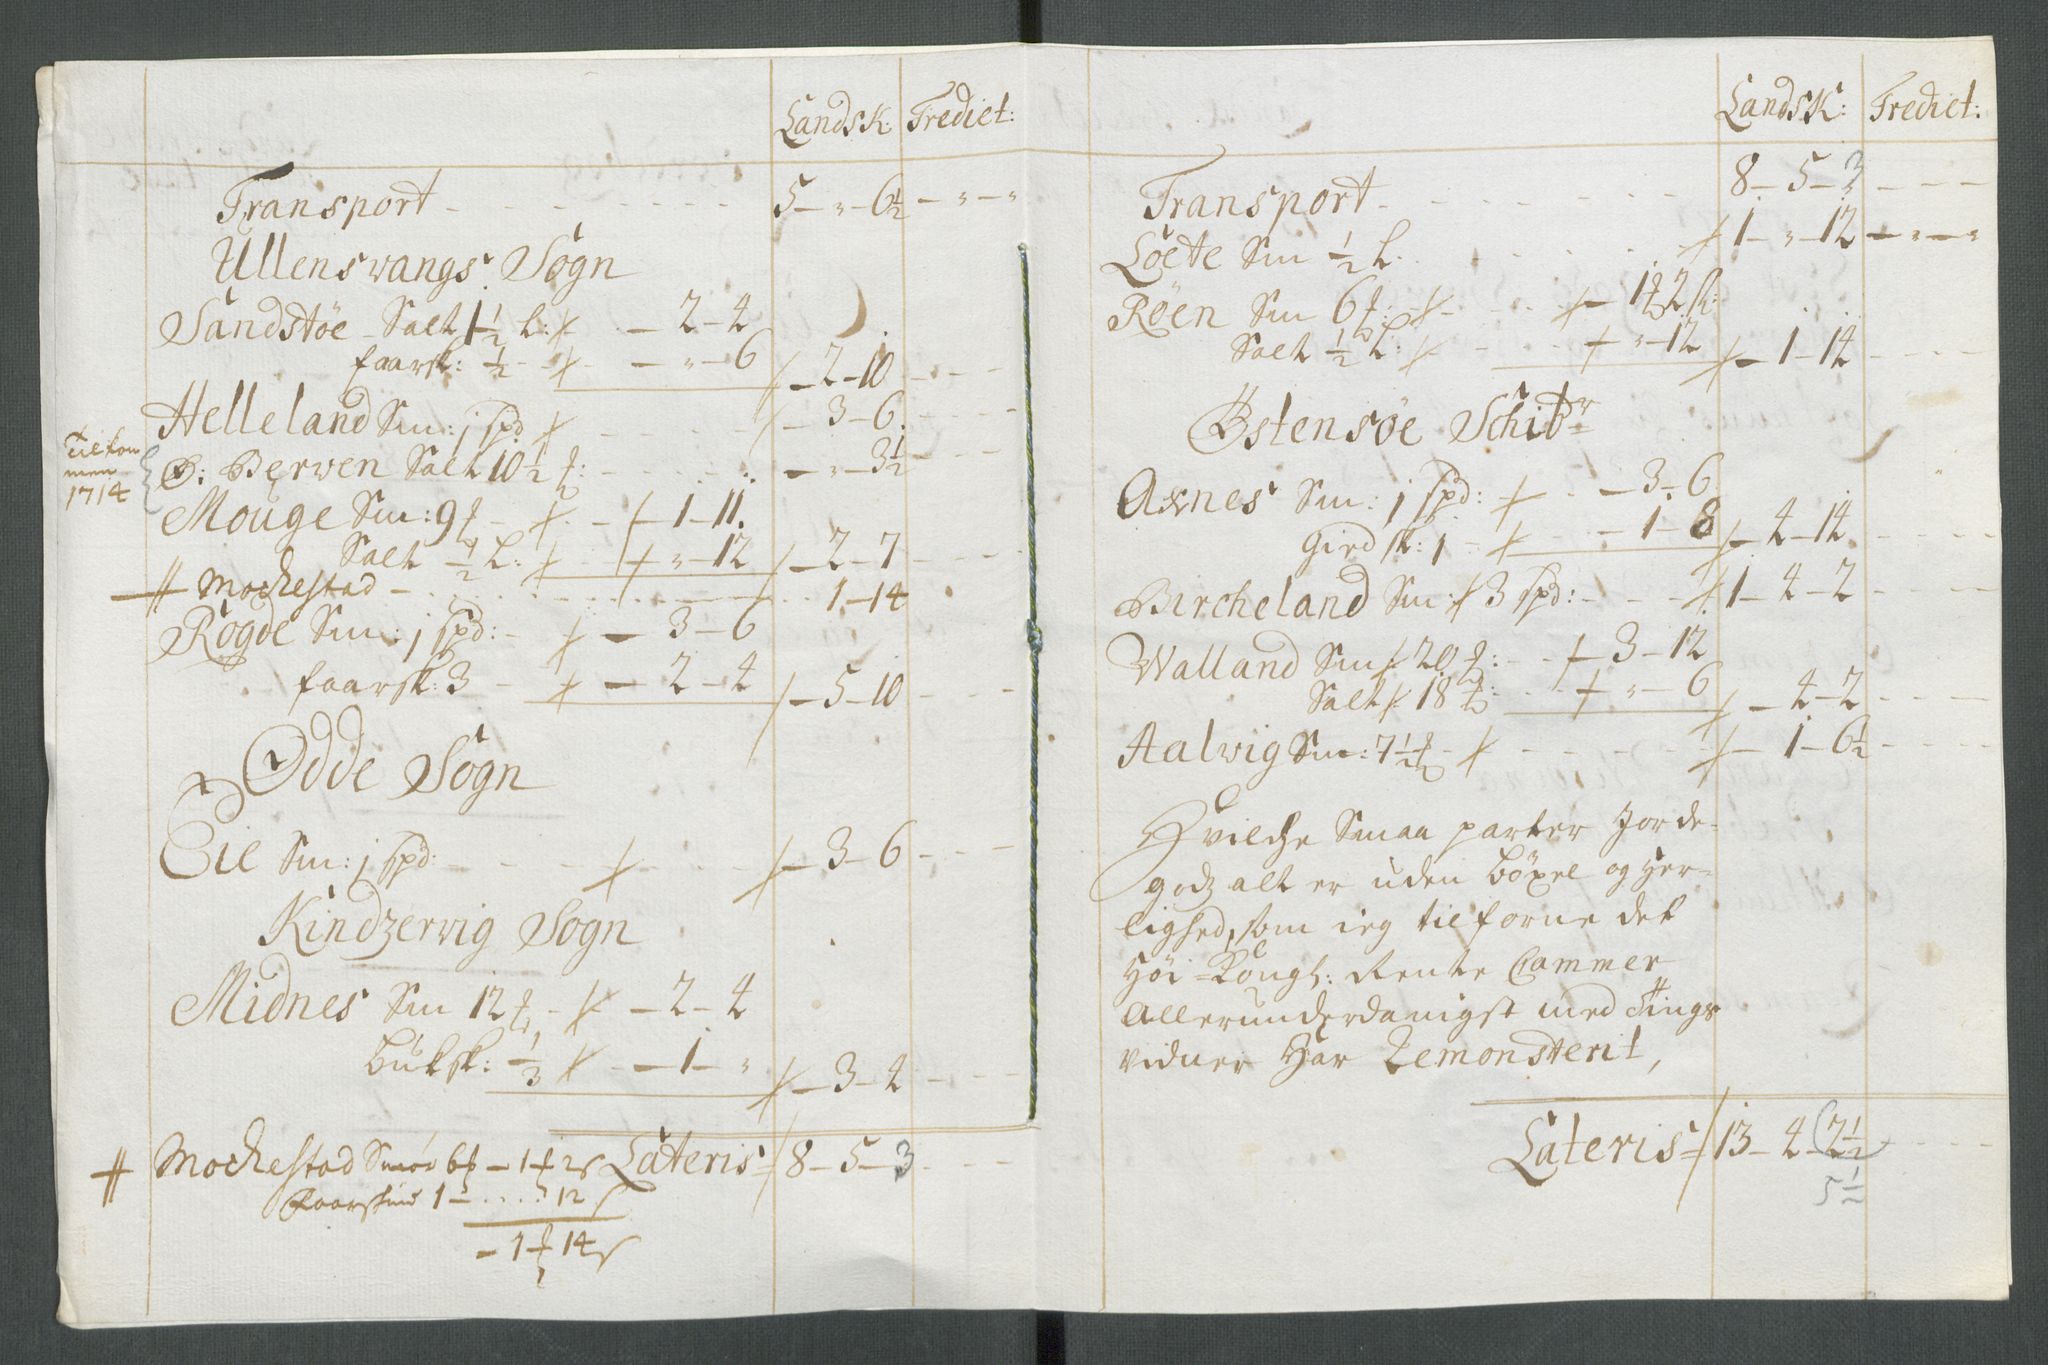 Landsk: Trediet:
Transport 5 – " – 6½ – " – "
Ullensvangs Sogn
Sandstöe Salt 1½ L: – 2 – 4
faarsk: ½ – " – 6 – 2 – 10
Helleland Sm: j spd – 3 – 6
Tilkom
men
1714
Ø: Berven Salt 10½ – " – 3½
Mouge Sm: 9 – 1 – 11
Salt ½ L: " – 12 – 2 – 7
Mochestad 1 – 14
Rogde Sm: j spd: – 3 – 6
faarsk: 3 – 2 – 4 – 5 – 10
Odde Sogn
Eil Sm: j spd: – 3 – 6
Kindzervig Sogn
Midnes Sm 12 – 2 – 4
buksk: ⅓ – 1 – " – 3 – 4
Mochestad Smör 6 – 1 2 Lateris 8 – 5 – 3
Faarskind 1 – 12
– 1 14
Landsk: Trediet:
Transport 8 – 5 – 3
Loete Sm ½ L. 1 – " – 12 – " – "
Röen Sm 6 – 1 2
Salt ½ L: " – 12 – 1 – 14
Østensöe Schibr
Axnes Sm: j spd: – 3 – 6
Giedsk: j – 1 – 8 – 4 – 14
Bircheland Sm: 3 spd: 1 – 4 – 2
Walland Sm 20 – 3 – 12
Salt 18 " – 6 – 4 – 2
Aalvig Sm: 7½ – 1 – 6½
Hvilche Smaa parter Jorde-
godz alt er uden böxel og Her-
lighed, som ieg tilforne det
Höi-Kongl: Rente Cammer
Allerunderdanigst med Tings
vidner Har Remonsterit,
Lateris 13 – 4 – 2½
5½